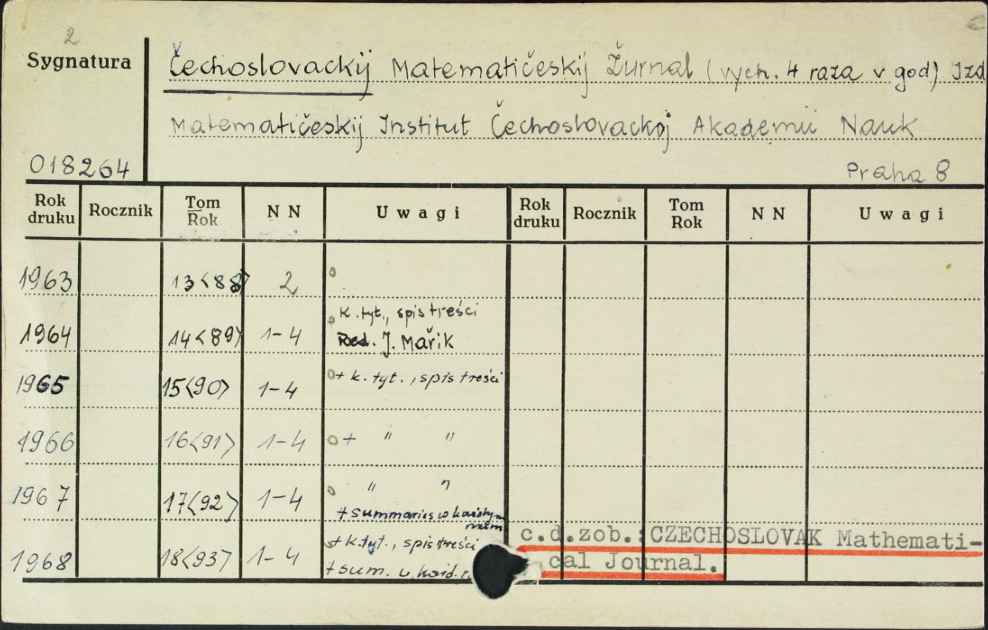 2
Sygnatura
Čechoslovackij Matematičeskij Žurnal (vych. 4 raza v god) Izd
Matematičeskij Institut Čechoslovackoj Akademii Nauk
018264
Praha 8
Rok druku Rocznik Tom Rok NN Uwagi Rok druku Rocznik Tom Rok NN Uwagi
1963 13<88> 2 o
o k. tyt., spis treści
1964 14<89> 1-4 Red. J. Mařik
1965 15<90> 1-4 o+ k. tyt., spis treści
1966 16<91> 1-4 o+ " "
1967 17<92> 1-4 o " "
+ summaries w każdym
c.d.zob.: CZECHOSLOVAK Mathemati-
cal Journal.
1968 18<93> 1-4 + k.tyt., spis treści
+ sum. w każd.